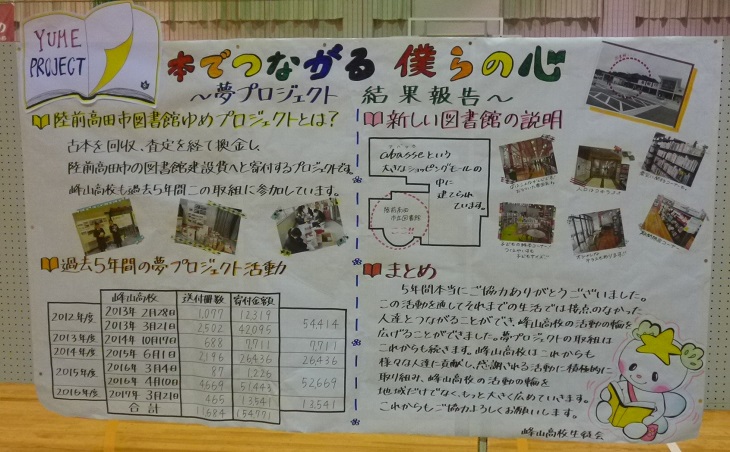 YUME
PROJECT
本でつながる 僕らの心
～夢プロジェクト 結果報告～
陸前高田市図書館ゆめプロジェクトとは?
古本を回収、査定を経て換金し、
陸前高田市の図書館建設費へと寄付するプロジェクトです。
峰山高校も過去5年間この取組に参加しています。
過去5年間の夢プロジェクト活動
峰山高校 送付冊数 寄付金額
2012年度 2013年 2月28日 1,077 12319 54414
2013年 3月21日 2502 42095
2013年度 2014年 10月17日 688 7,711 7,711
2014年度 2015年 6月1日 2196 26,436 26,436
2015年度 2016年 3月4日 87 1226 52,669
2016年 4月10日 4669 51443
2016年度 2017年 3月21日 465 13541 13,541
合計 11684 154771
新しい図書館の説明
abasseという
大きなショッピングモールの
中に
建てられ
ています。
陸前高田
市立図書館
まとめ
5年間本当にご協力ありがとうございました。
この活動を通してそれまでの生活では接点のなかった
人達とつながることができ、峰山高校の活動の輪を
広げることができました。夢プロジェクトの取組は
これからも続きます。峰山高校はこれからも
様々な人達に貢献し、感謝される活動に積極的に
取り組み、峰山高校の活動の輪を
地域だけでなく、もっと大きく広めていきます。
これからもご協力よろしくお願いします。
峰山高校生徒会